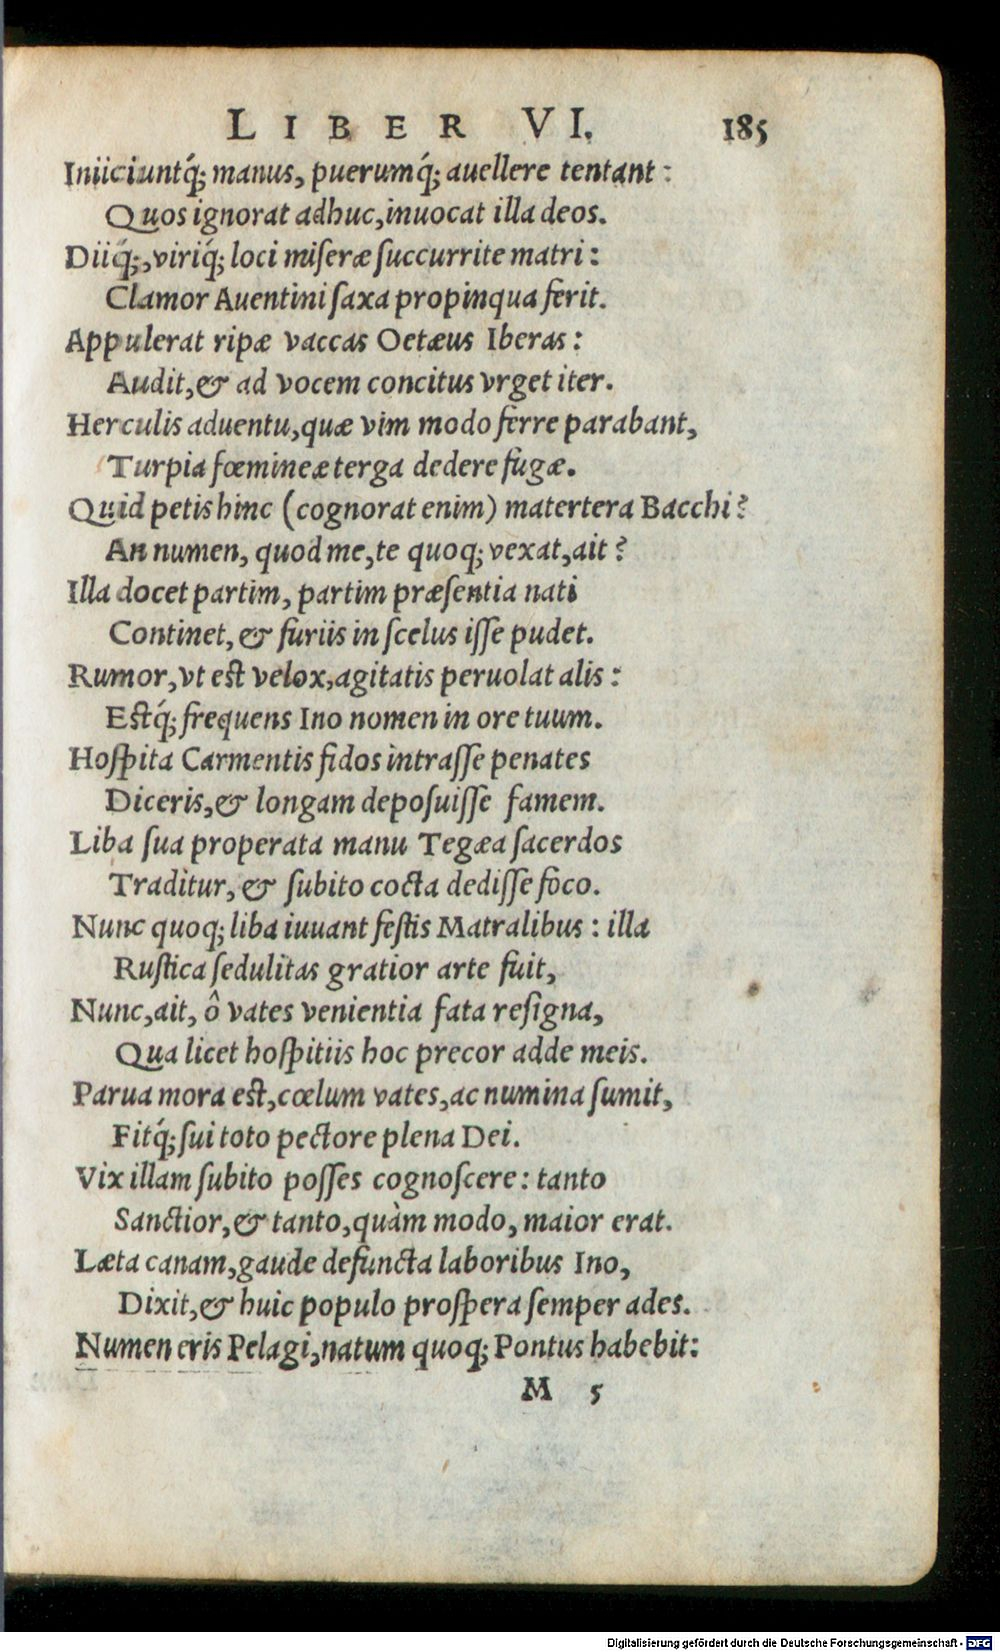 LIBER VI. 185
Iniiciuntq́; manus, puerumq́; auellere tentant:
Quos ignorat adhuc, inuocat illa deos.
Diiq́;, viriq́; loci miseræ succurrite matri:
Clamor Auentini saxa propinqua ferit.
Appulerat ripæ vaccas Oetæus Iberas:
Audit, & ad vocem concitus vrget iter.
Herculis aduentu, quæ vim modo ferre parabant,
Turpia fœmineæ terga dedere fugæ.
Quid petis hinc (cognorat enim) matertera Bacchi?
An numen, quod me, te quoq; vexat, ait?
Illa docet partim, partim præsentia nati
Continet, & furiis in scelus isse pudet.
Rumor, vt est velox, agitatis peruolat alis:
Estq́; frequens Ino nomen in ore tuum.
Hospita Carmentis fidos intrasse penates
Diceris, & longam deposuisse famem.
Liba sua properata manu Tegæa sacerdos
Traditur, & subito cocta dedisse foco.
Nunc quoq; liba iuuant festis Matralibus: illa
Rustica sedulitas gratior arte fuit,
Nunc, ait, ô vates venientia fata resigna,
Qua licet hospitiis hoc precor adde meis.
Parua mora est, cœlum vates, ac numina sumit,
Fitq́; sui toto pectore plena Dei.
Vix illam subito posses cognoscere: tanto
Sanctior, & tanto, quàm modo, maior erat.
Læta canam, gaude defuncta laboribus Ino,
Dixit, & huic populo prospera semper ades.
Numen eris Pelagi, natum quoq; Pontus habebit:
M 5
Digitalisierung gefördert durch die Deutsche Forschungsgemeinschaft - DFG